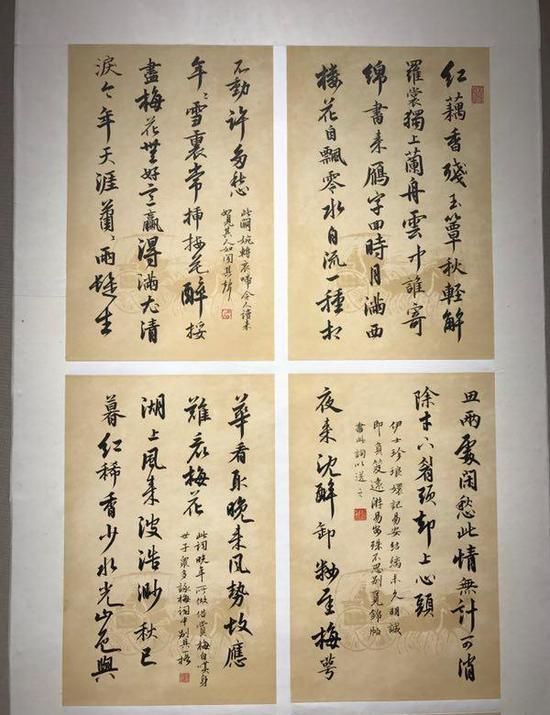 红藕香殘玉簟秋輕解
羅裳獨上蘭舟雲中誰寄
錦書来鴈字回時月滿西
樓花自飄零水自流一種相
思兩處閑愁此情無計可消
除才下眉頭却上心頭
伊士珍琅嬛記易安结縭未久明誠
即負笈遠游易安殊不忍别覓錦帕
書此詞以送之
夜来沈醉卸妝遲梅萼
不動許多愁
此闋婉轉哀啼令人讀来
如見其人如聞其聲
年々雪裏常插梅花醉挼
盡梅花無好意贏得滿衣清
淚今年天涯蕭々兩鬢生
華看取晚来風勢故應
難看梅花
此詞晚年所做借賞梅自嘆身
世于衆多詠梅詞中别具一格
湖上風来波浩渺秋已
暮红稀香少水光山色與